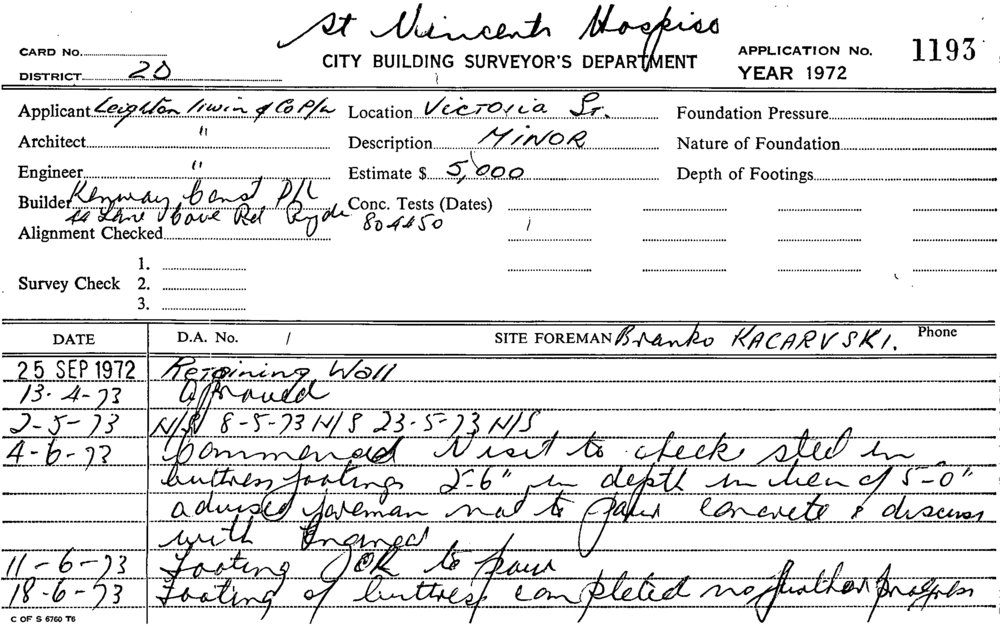 St Vincents Hospiso
CARD No.
CITY BUILDING SURVEYOR'S DEPARTMENT
APPLICATION No. 1193
DISTRICT 20
YEAR 1972
Applicant Leighton Irwin & Co P/L Location Victoria St. Foundation Pressure
Architect " Description MINOR Nature of Foundation
Engineer " Estimate $ 5,000 Depth of Footings
Builder Kenway Const P/L Conc. Tests (Dates)
44 Lane Cove Rd Ryde 804450
Alignment Checked
1.
Survey Check 2.
3.
DATE D.A. No. SITE FOREMAN Branko KACARVSKI. Phone
25 SEP 1972 Retaining Wall
13-4-73 Approved
2-5-73 N/S 8-5-73 N/S 23-5-73 N/S
4-6-73 Commenced Visit to check steel in
buttress footings 2-6" in depth in lieu of 5-0"
advised foreman not to pour concrete & discuss
with Engineer
11-6-73 Footing OK to pour
18-6-73 Footing of buttress completed no further progress
C OF S 6760 T6